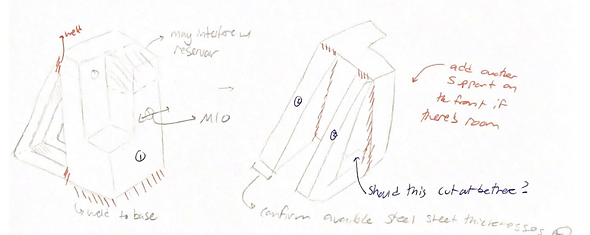 weld
may interfere w
reservoir
M10
①
weld to base
②
③
add another
support on
the front if
there's room
should this cutout be here?
confirm availible steel sheet thicknesses